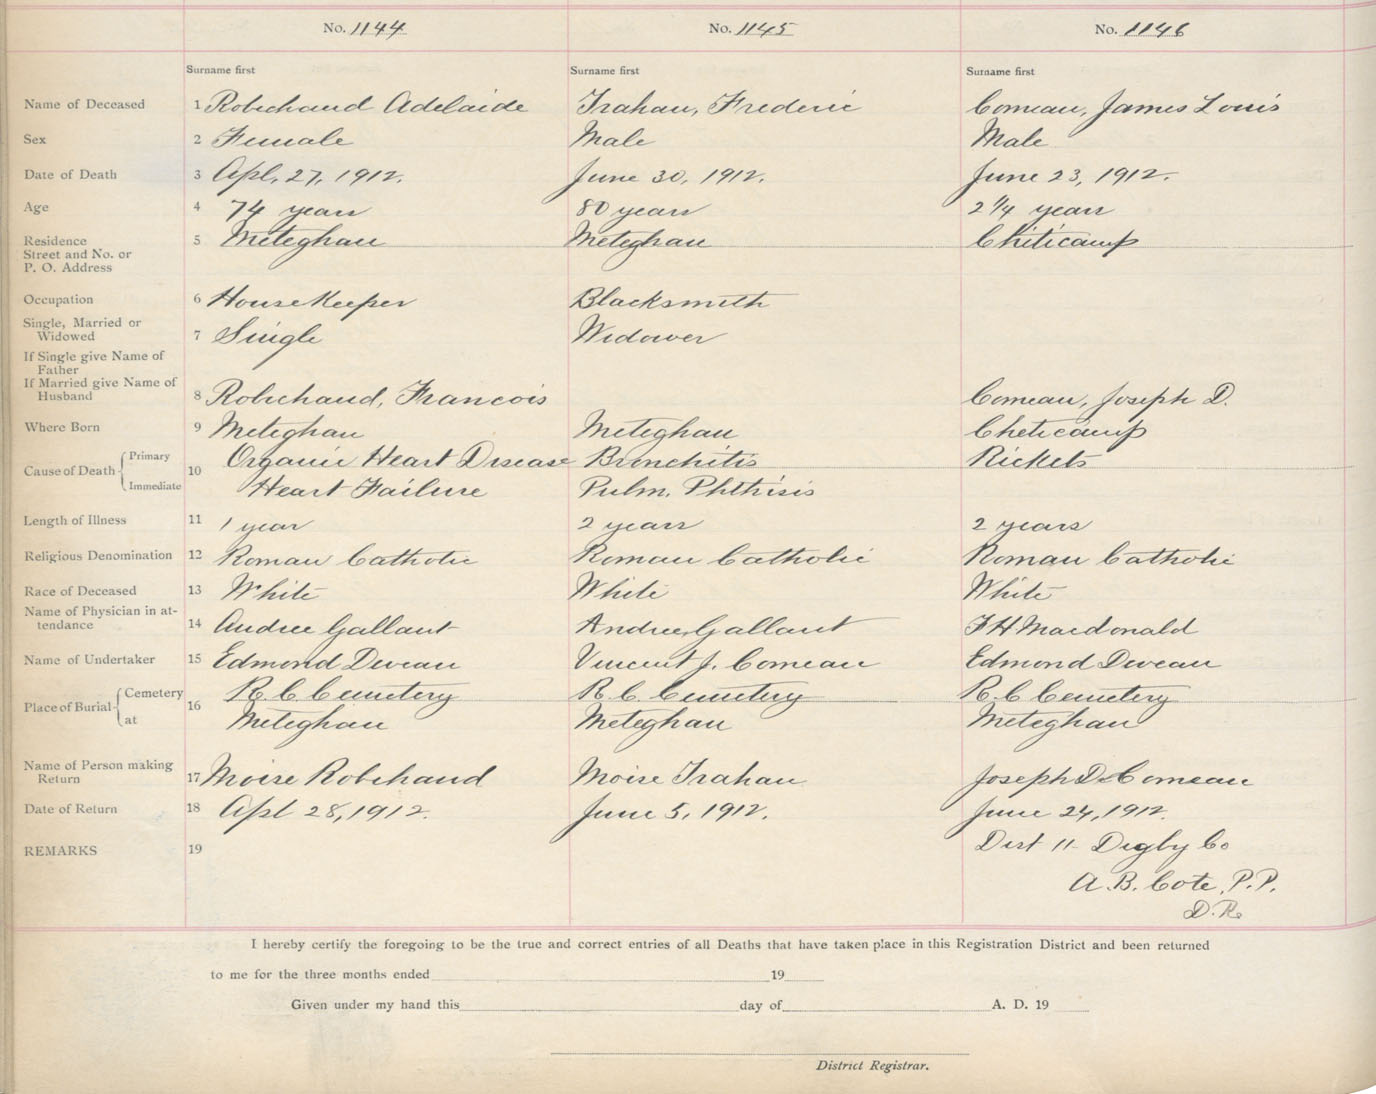 No. 1144 No. 1145 No. 1146
Surname first Surname first Surname first
Name of Deceased 1 Robichaud Adelaide Trahan, Frederic Comeau, James Louis
Sex 2 Female Male Male
Date of Death 3 Apl. 27, 1912. June 30, 1912. June 23, 1912.
Age 4 74 years 80 years 2 1/4 years
Residence 5 Meteghan Meteghan Cheticamp
Street and No. or
P. O. Address
Occupation 6 HouseKeeper Blacksmith
Single, Married or
Widowed 7 Single Widower
If Single give Name of
Father
If Married give Name of
Husband 8 Robichaud, Francois Comeau, Joseph D.
Where Born 9 Meteghan Meteghan Cheticamp
Cause of Death 10 Primary Organic Heart Disease Bronchitis Rickets
Immediate Heart Failure Pulm. Phthisis
Length of Illness 11 1 year 2 years 2 years
Religious Denomination 12 Roman Catholic Roman Catholic Roman Catholic
Race of Deceased 13 White White White
Name of Physician in at-
tendance 14 Andree Gallant Andree Gallant F H Macdonald
Name of Undertaker 15 Edmond Deveau Vincent J. Comeau Edmond Deveau
Place of Burial 16 Cemetery R. C Cemetery R. C. Cemetery R. C Cemetery
at Meteghan Meteghan Meteghan
Name of Person making
Return 17 Moise Robihaud Moise Trahan Joseph D. Comeau
Date of Return 18 Apl 28, 1912. June 5, 1912. June 24, 1912.
REMARKS 19 Dist 11 Digby Co
A. B. Cote, P.P.
D.R.
I hereby certify the foregoing to be the true and correct entries of all Deaths that have taken place in this Registration District and been returned
to me for the three months ended 19
Given under my hand this day of A. D. 19
District Registrar.